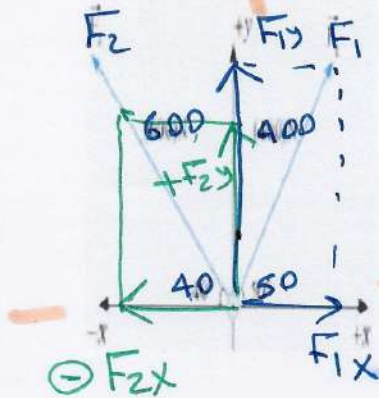 F2 F1y F1
600 400
+F2y
40 60
-x
F1x
⊖ F2x